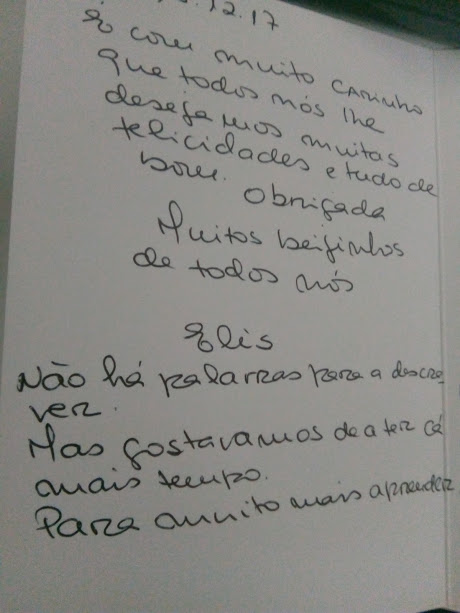 .12.17
É com muito carinho
que todos nós lhe
desejamos muitas
felicidades e tudo de
bom.
Obrigada
Muitos beijinhos
de todos nós
Elis
Não há palavras para a descre
ver.
Mas gostavamos de a ter cá
mais tempo.
Para muito mais aprender